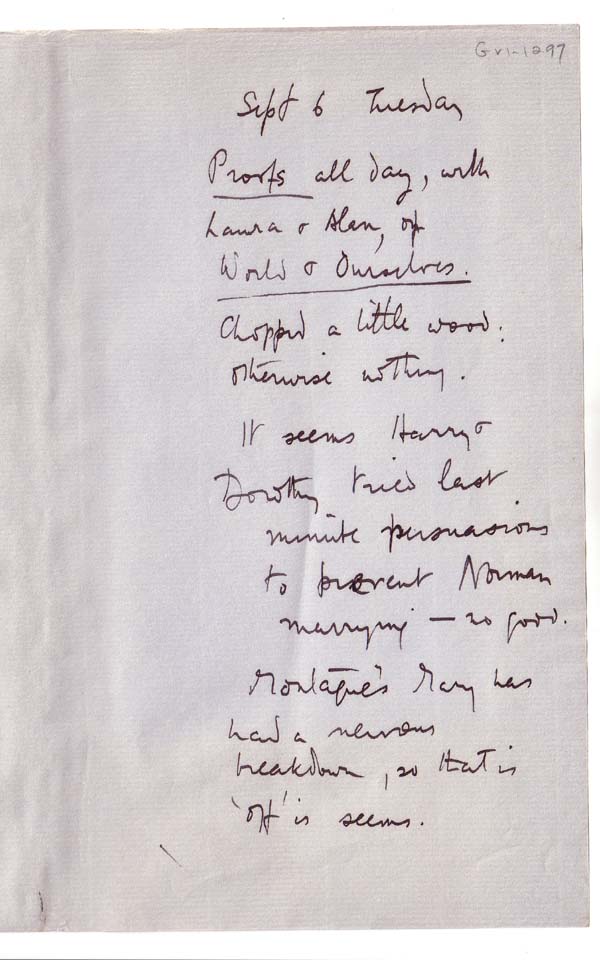 GV1-1297
Sept 6 Tuesday
Proofs all day, with
Laura & Alan, of
World & Ourselves.
Chopped a little wood:
otherwise nothing.
It seems Harry &
Dorothy tried last
minute persuasions
to prevent Norman
marrying — no good.
Montague's Mary has
had a nervous
breakdown, so that is
'off' is seems.